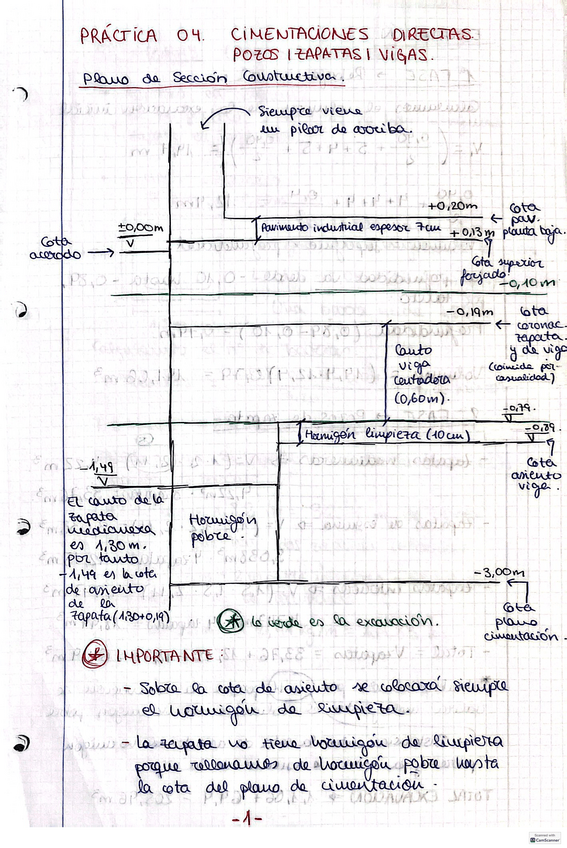 PRÁCTICA 04. CIMENTACIONES DIRECTAS.
POZOS | ZAPATAS | VIGAS.
Plano de Sección Constructiva.
Siempre viene
un pilar de arriba.
+0,20m
Cota
pav.
planta baja.
±0,00m
Pavimento industrial espesor 7cm
+0,13m
Cota
acerado
Cota superior
forjado
-0,10m
-0,19m
Cota
coronac.
zapata
y de viga
(coincide por
casualidad)
Canto
viga
centradora
(0,60m).
-0,79.
Hormigón limpieza (10cm)
-0,89.
Cota
asiento
viga.
-1,49
El canto de la
zapata
medianera
es 1,30m.
por tanto
-1,49 es la cota
de asiento
de la
zapata (1.30+0,19)
Hormigón
pobre.
-3,00m
Cota
plano
cimentación.
* lo verde es la excavación.
* IMPORTANTE:
- Sobre la cota de asiento se colocará siempre
el hormigón de limpieza.
- La zapata no tiene hormigón de limpieza
porque rellenamos de hormigón pobre hasta
la cota del plano de cimentación.
-1-
Scanned with
CamScanner